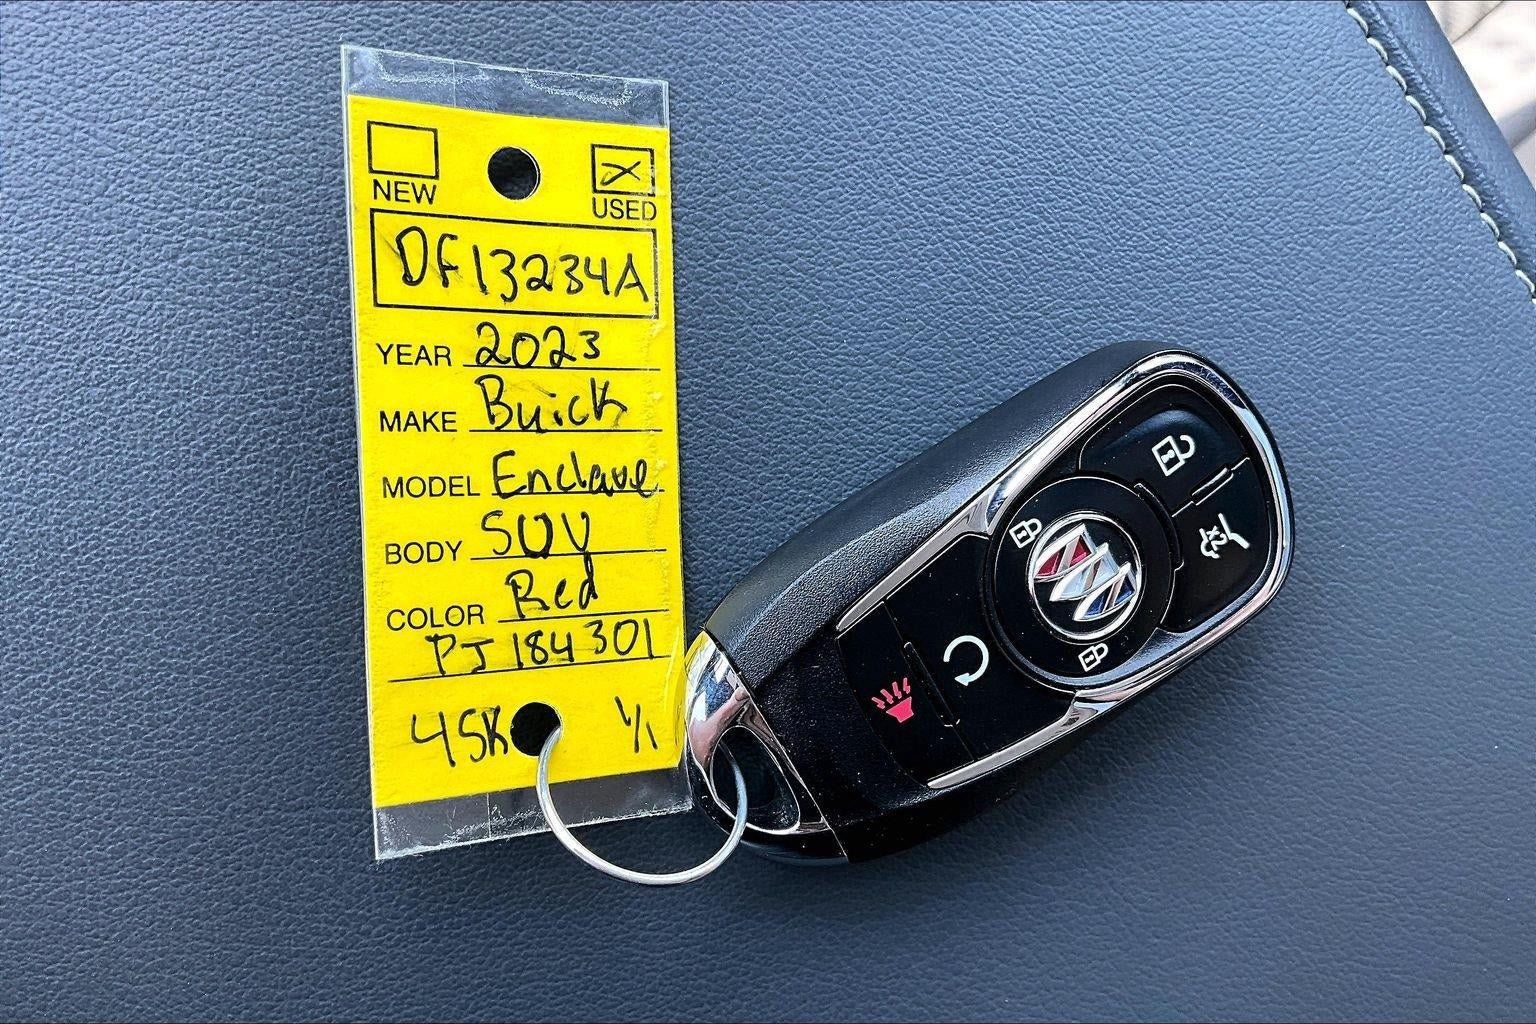 NEW USED
DF13234A
YEAR 2023
MAKE Buick
MODEL Enclave
BODY SUV
COLOR Red
PJ184301
45K 1/1